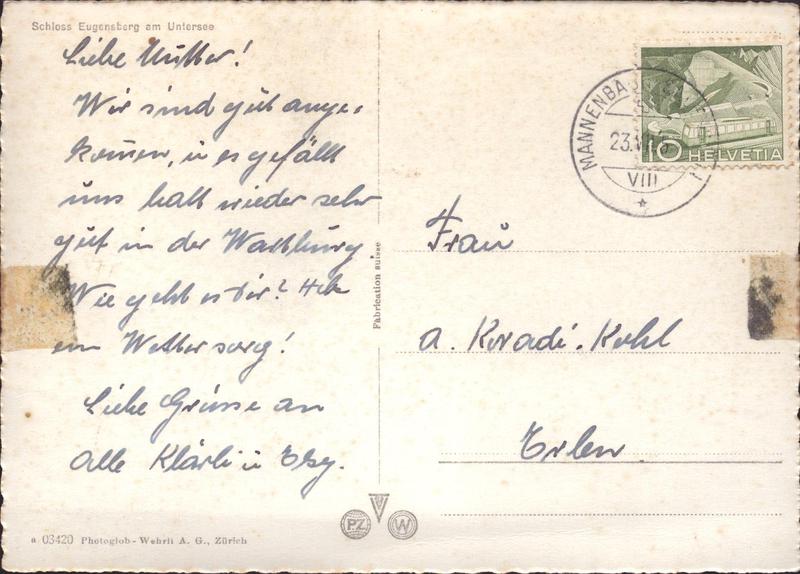 Schloss Eugensberg am Untersee
Liebe Mutter!
Wir sind gut ange-
kommen, u es gefällt
uns halt wieder sehr
gut in der Wartburg
Wie geht es Dir? Heb
em Wetter sorg!
Liebe Grüsse an
alle Klärli u Elsy.
a 03420 Photoglob-Wehrli A. G., Zürich
Fabrication suisse
PZ W
MANNENBACH
23.VII.
VIII
10 HELVETIA
Frau
A. Koradi-Kohl
Erlen